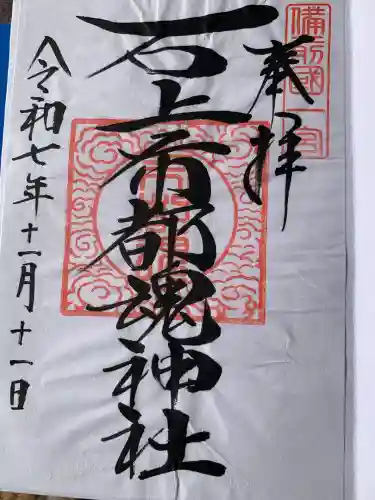 備前國一宮
奉拝
石上布都魂神社
令和七年十一月十一日